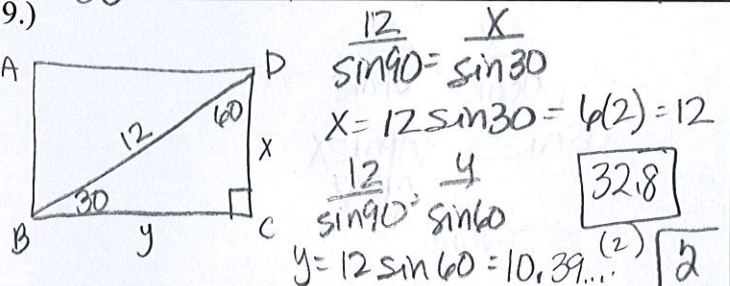 9.)
A
D
12
60
x
30
B
y
C
12/sin90 = x/sin30
x = 12 sin30 = 6(2) = 12
12/sin90 = y/sin60
32.8
y = 12 sin 60 = 10.39... (2)
2